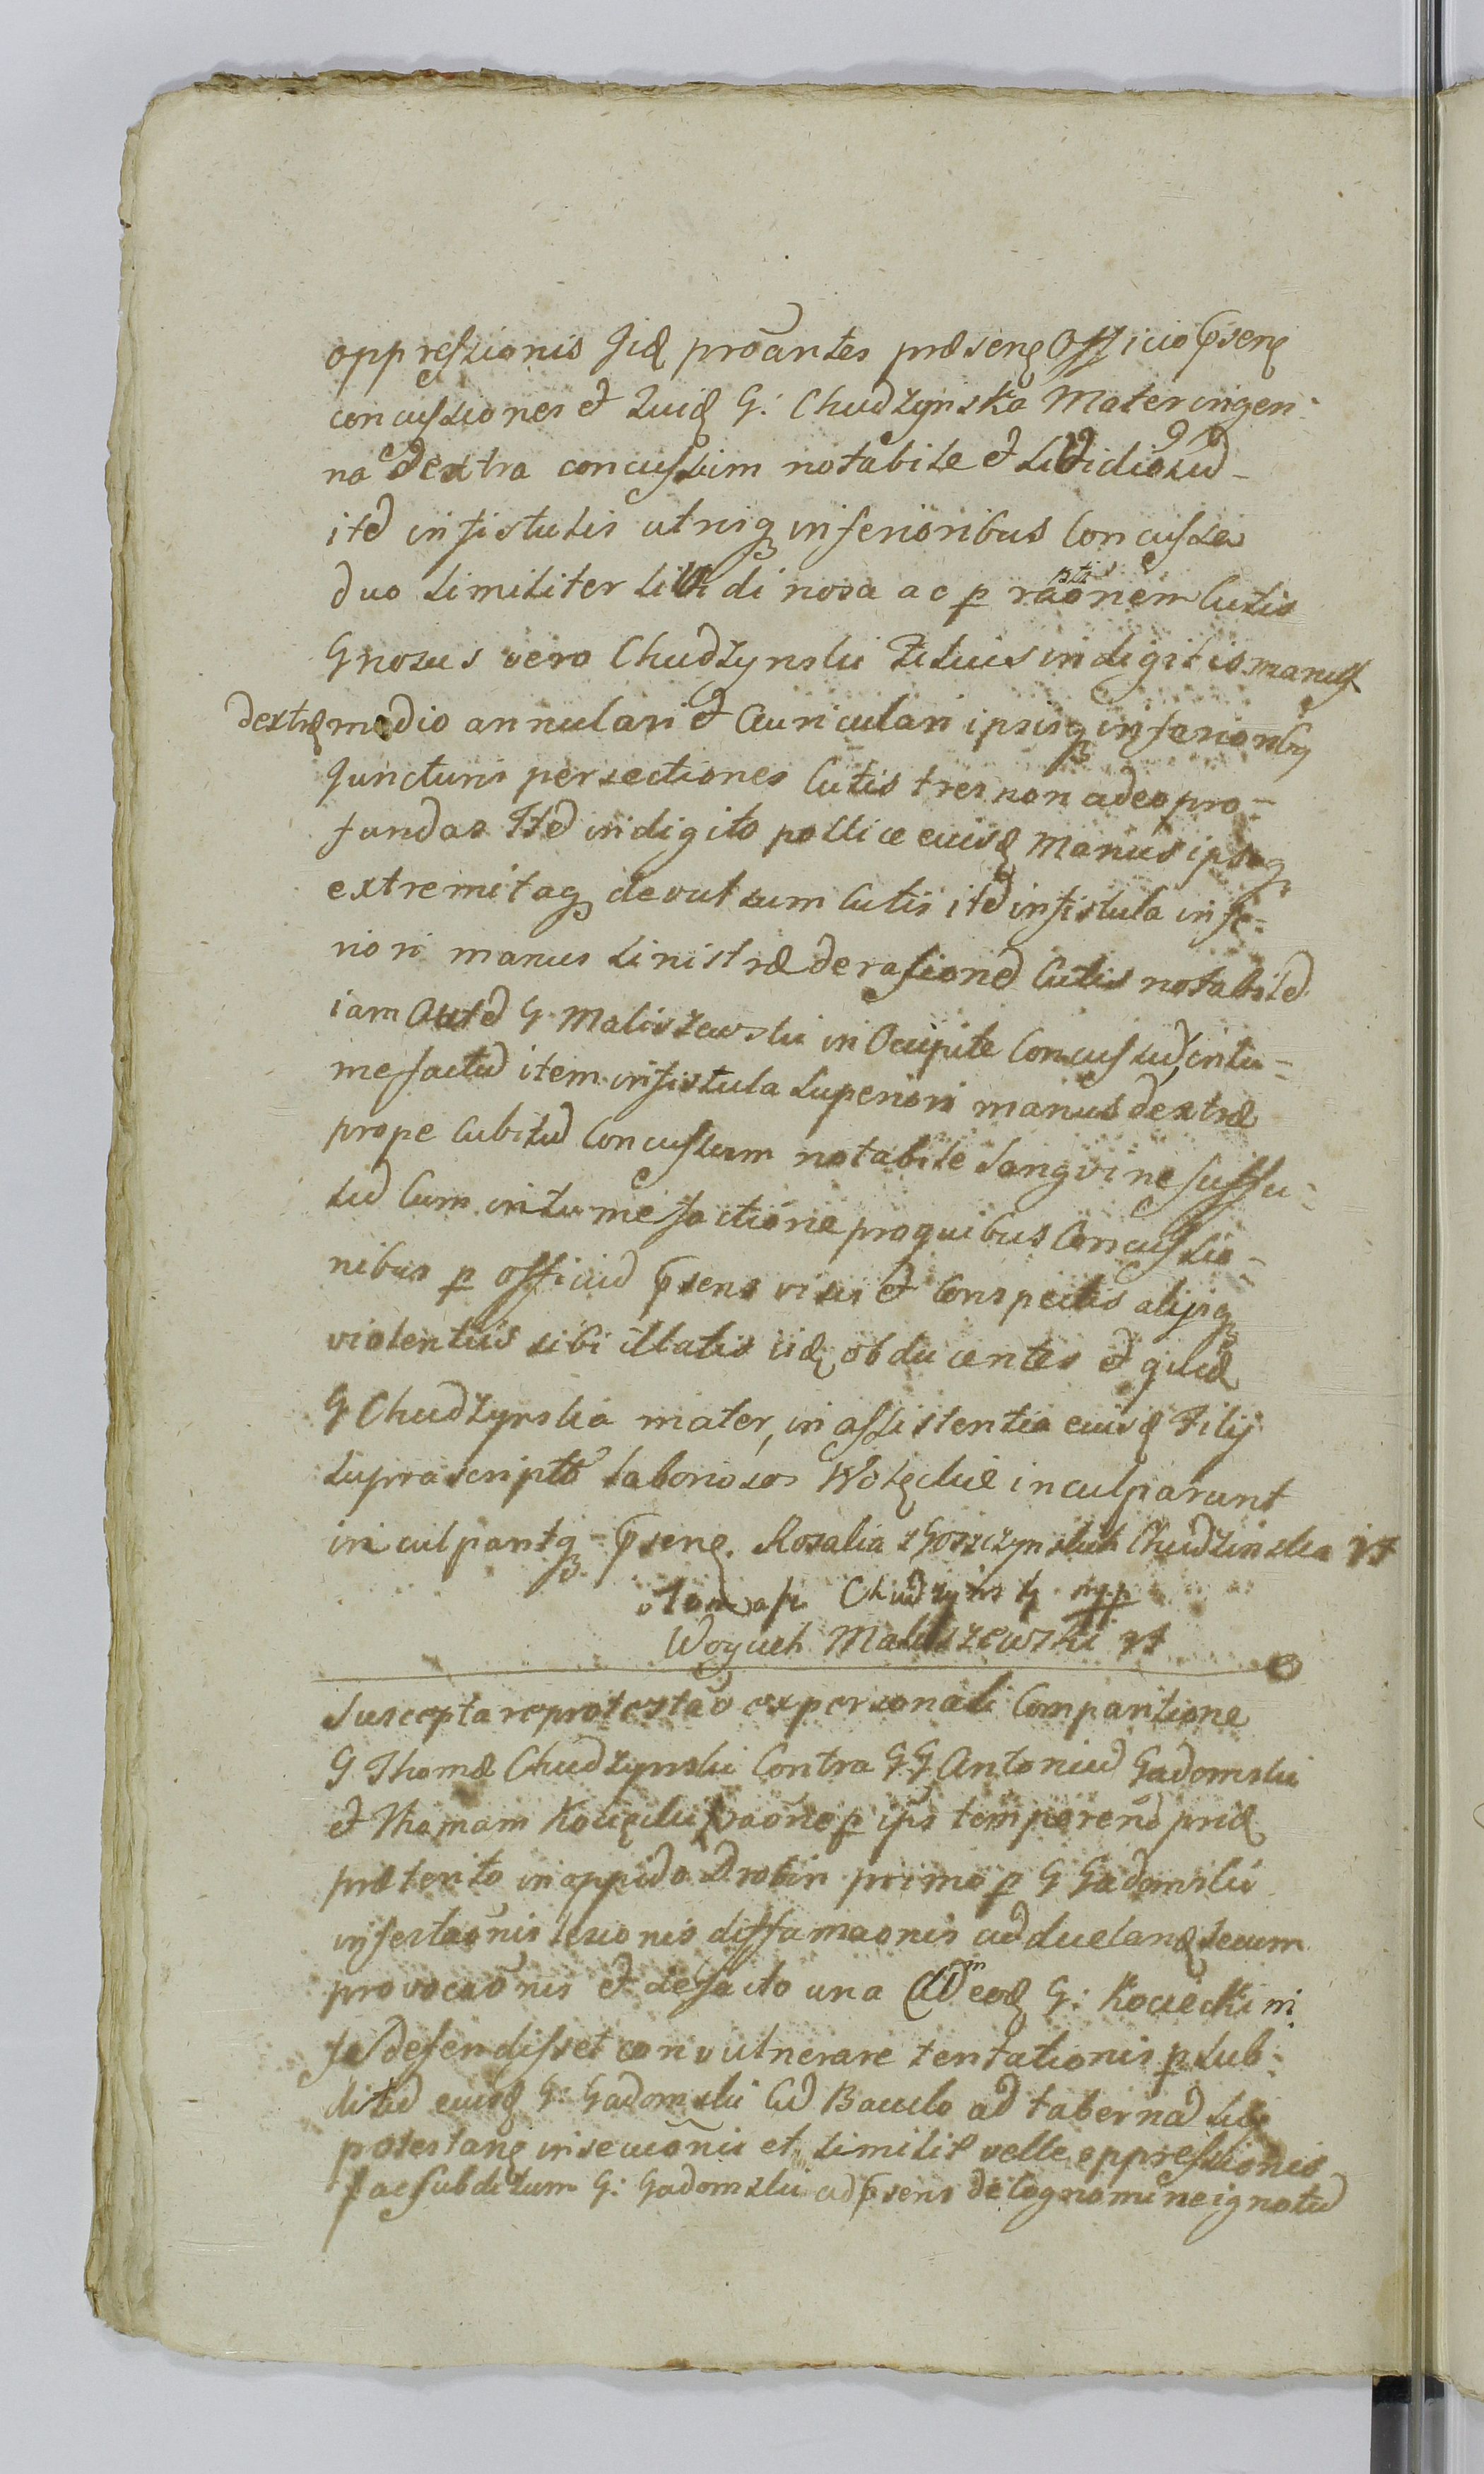 oppressionis Jid protantes præsene Officio pñsene
concussiones et quid G: Chudzynska Mater in gen-
na dextra concussum notabile et lividiosud
itd in fistulis utrisq inferioribus concussa
duo similiter lividinosa ac p raonem Cutis
Gnosus vero Chudzynski Filius in digitis manus
dextræ medio annulari et auriculari ipsisq inferioribq
Juncturis persectiones Cutis tres non adeo pro-
fundas Itd in digito pollice eiusd manus ipsaq
extremitaq devulsum Cutis itd in fistula infe-
riori manus sinistræ derasioned Cutis notabiled
iam autd G Maliszewski in Occipite Concussud, intu-
mefactud item in fistula superiori manus dextræ
prope Cubitud Concussum notabile sangvine suffu-
sud Cum intumefactione pro quibus Concussio-
nibus p officiud pñsens visis et Conspectis alijsq
violentiis sibi illatis iid obducentes et quid
G Chudzynska mater, in assistentia eiusd Filij
suprascripto laboriosos Wolęckie inculparunt
inculpantq pñsene. Rosalia z Goszczynskich Chudzinska
Tomasz Chudzynski mpp
Woyciech Maliszewski
Suscepta reprotestao ex personali Comparitione
G Thomæ Chudzynski Contra GG Antoniud Gadomski
et Thomam Kocięcki raone p ips tempore nd prid
præterito in oppido Drobin primo p G Gadomski
infestaonis lesionis diffamaonis ad dueland secum
provocaonis et de facto una Cud eod G: Kociecki ni
se defendisset convulnerare tentationis p sub-
ditud eiusd G: Gadomski Cud Baculo ad tabernad
protestane insecuonis et similit velle oppressionis
ac subditum G: Gadomski ad pñsens de Cognomine ignotud